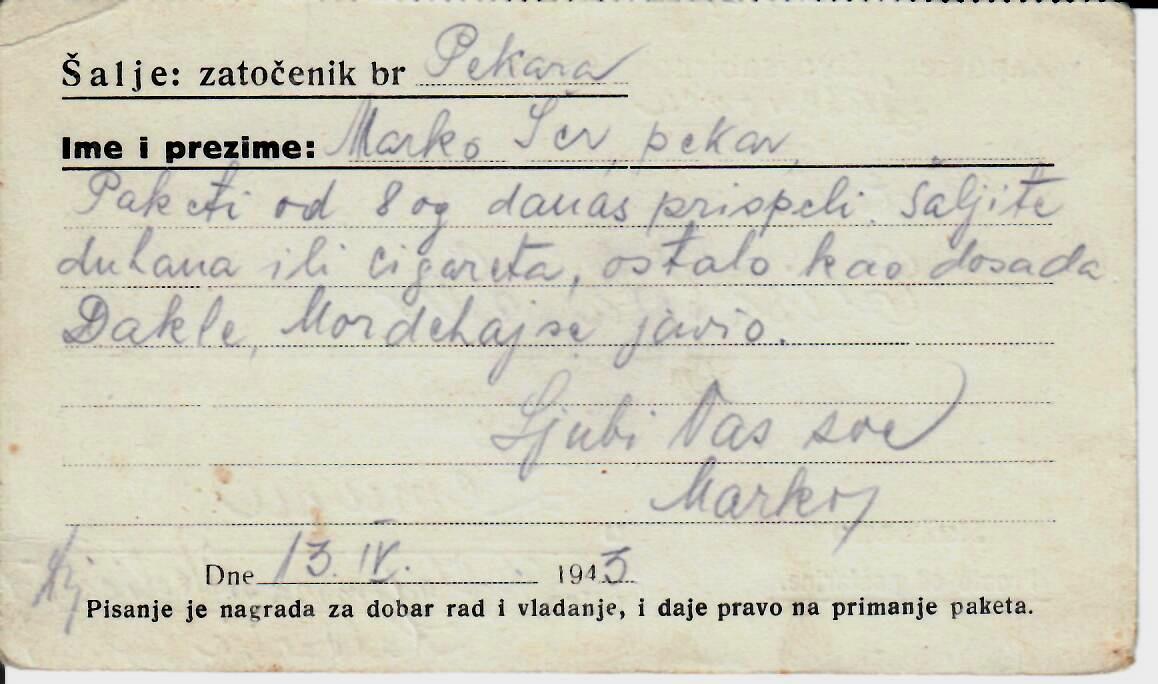 Šalje: zatočenik br Pekara
Ime i prezime: Marko pekar,
Paketi od 8 og danas prispeli. Šaljite
duhana ili cigareta, ostalo kao dosada
Dakle, Mordehaj se javio.
Ljubi Vas sve
Marko
Dne 13. IV. 1943
Pisanje je nagrada za dobar rad i vladanje, i daje pravo na primanje paketa.